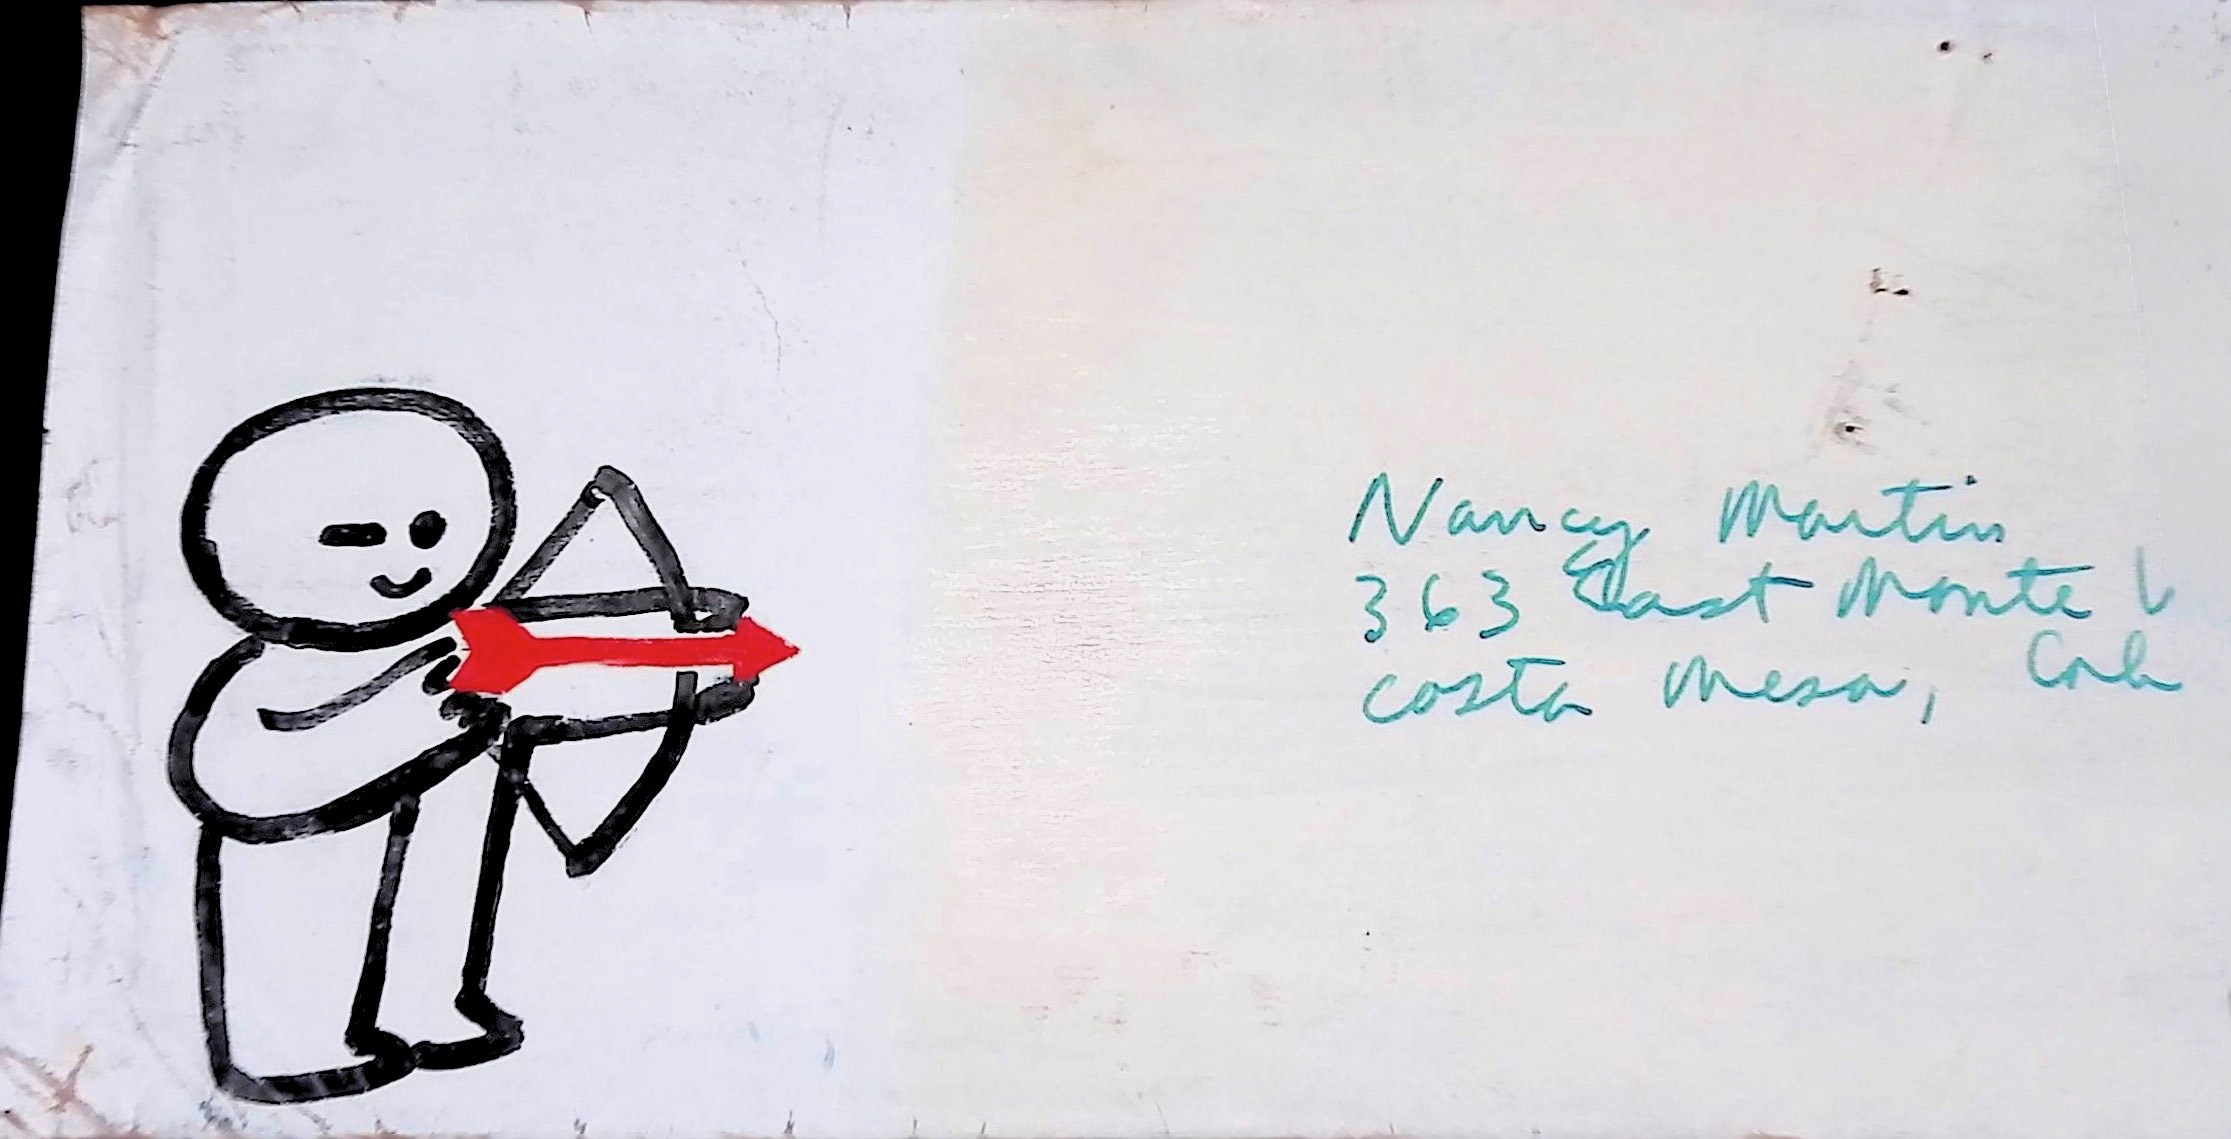 Nancy Martin
363 East Monte V
Costa Mesa, Cal